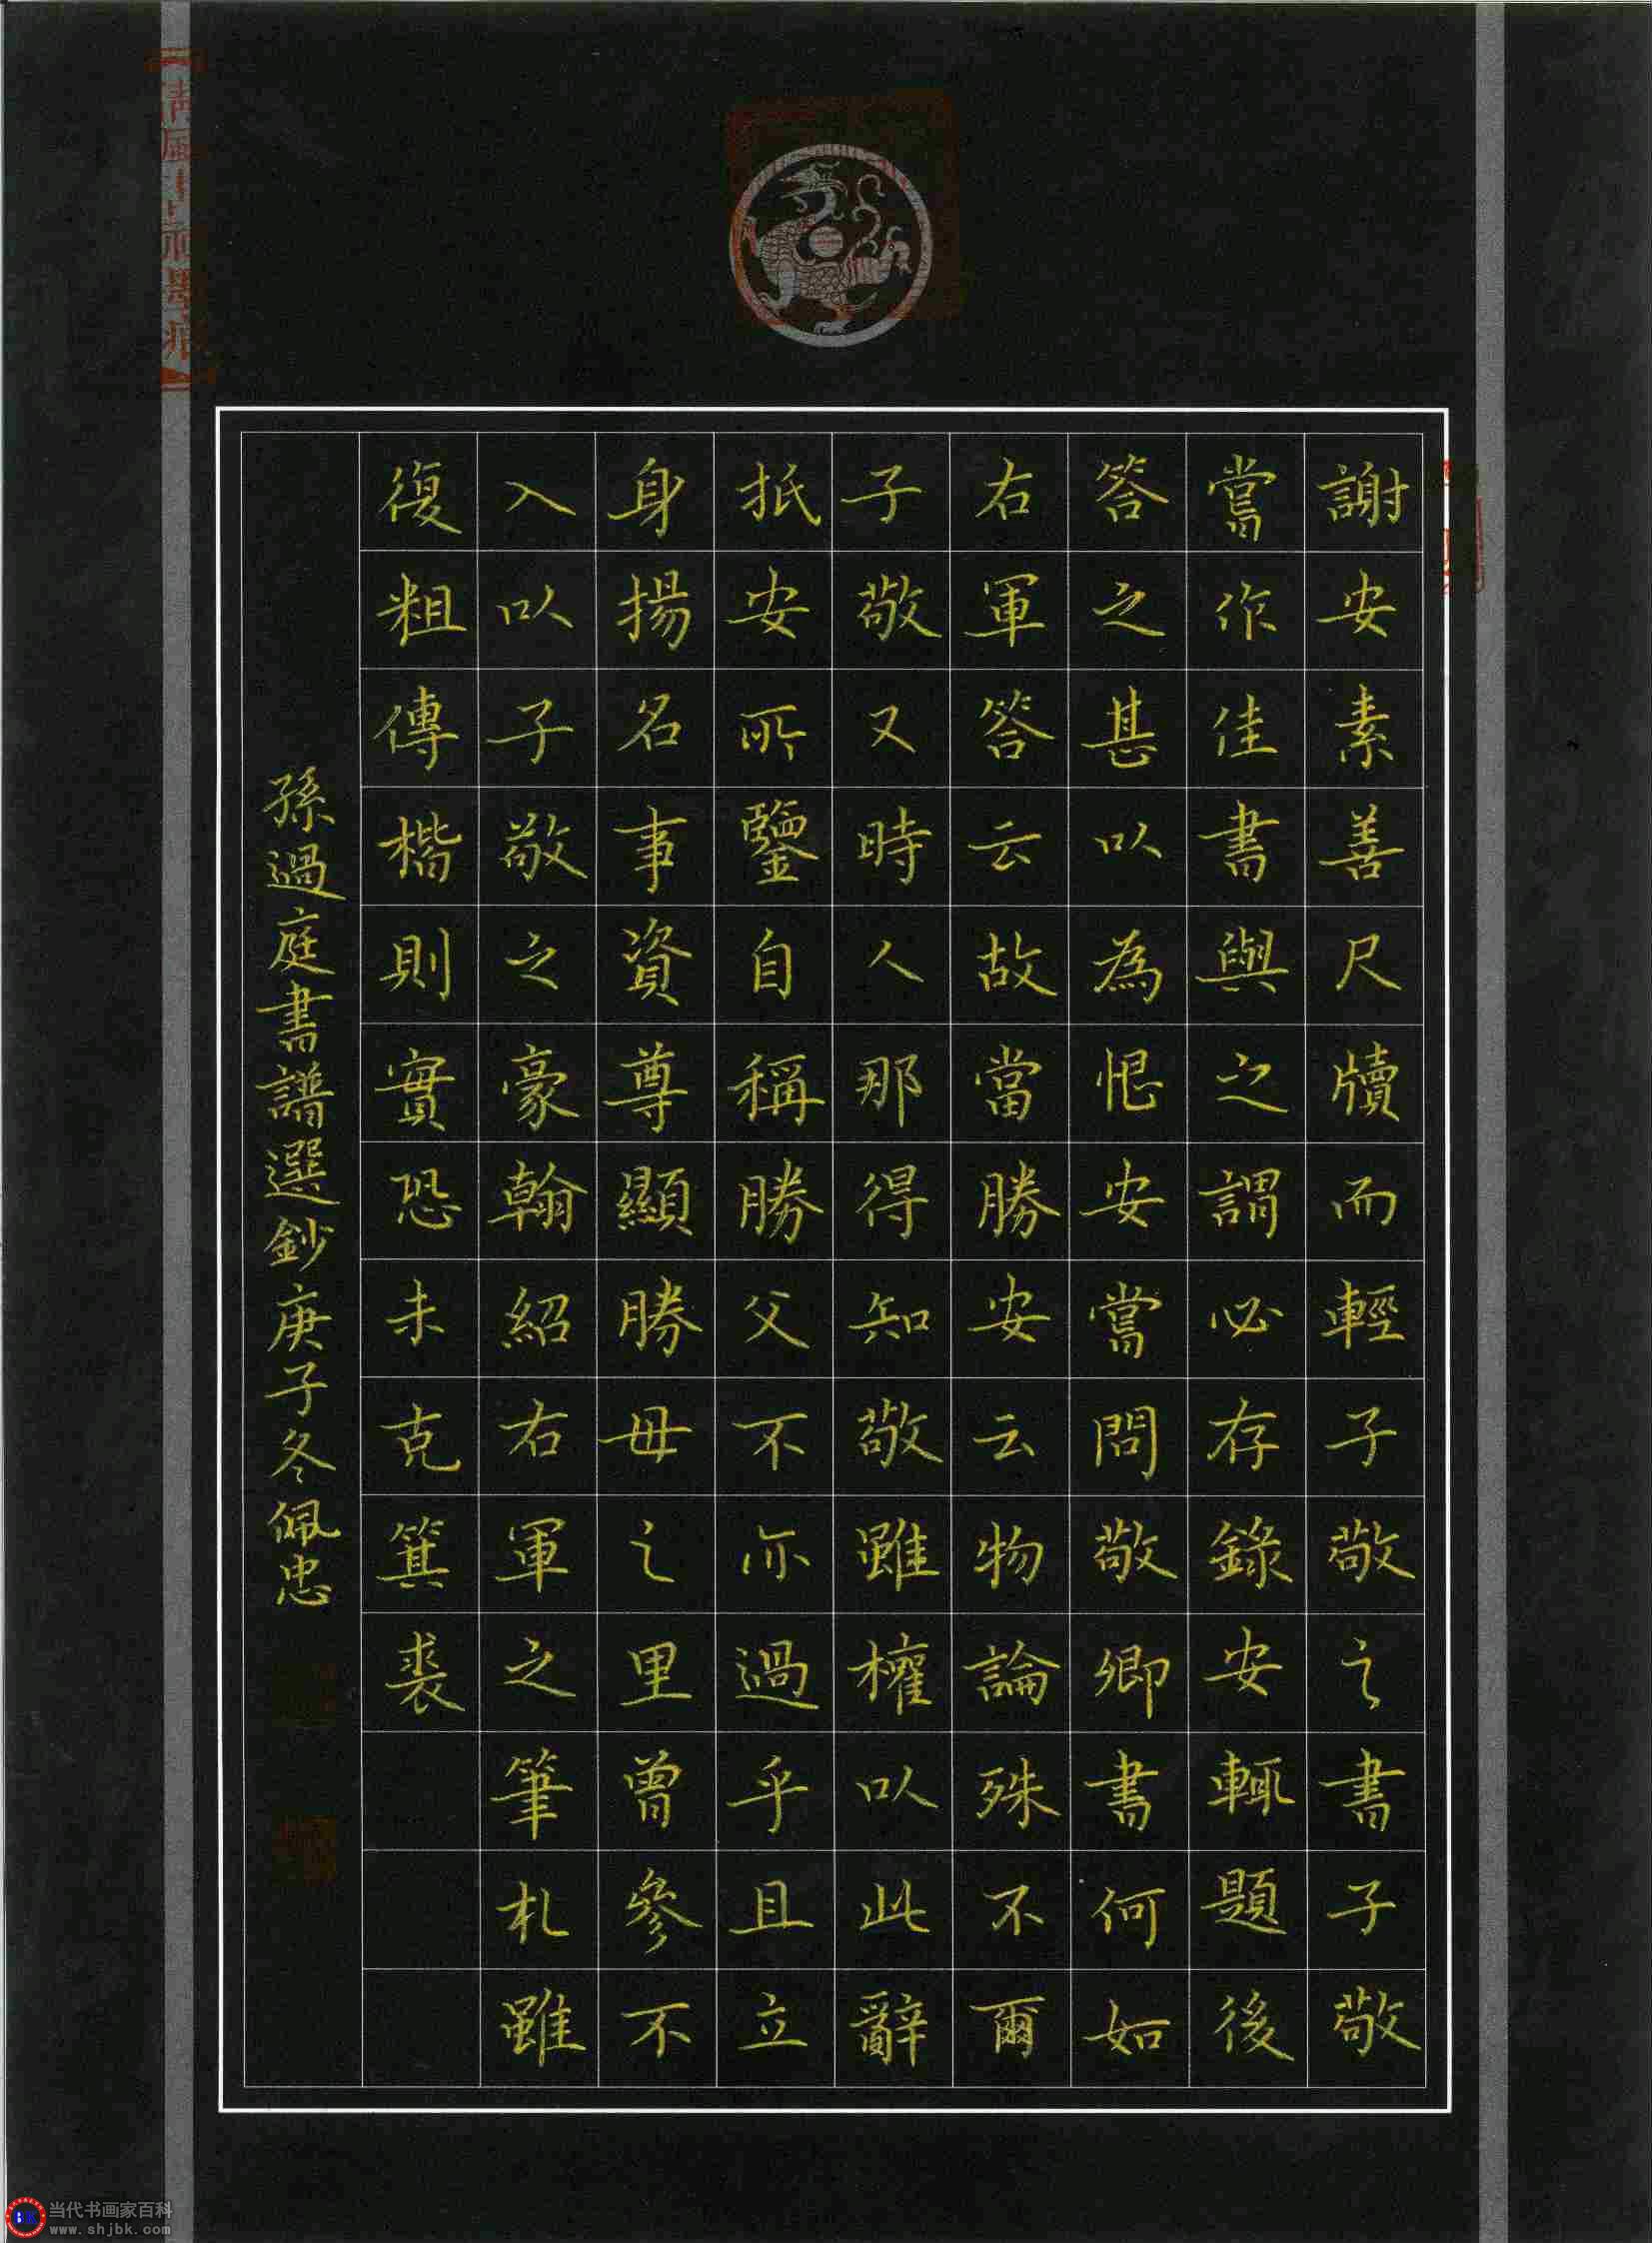 謝安素善尺牘而輕子敬之書子敬
嘗作佳書與之謂必存錄安輒題後
答之甚以為恨安嘗問敬卿書何如
右軍答云故當勝安云物論殊不爾
子敬又時人那得知敬雖權以此辭
抵安所鑒自稱勝父不亦過乎且立
身揚名事資尊顯勝母之里曾參不
入以子敬之豪翰紹右軍之筆札雖
復粗傳楷則實恐未克箕裘
孫過庭書譜選鈔庚子冬佩忠
当代书画家百科
www.shjbk.com